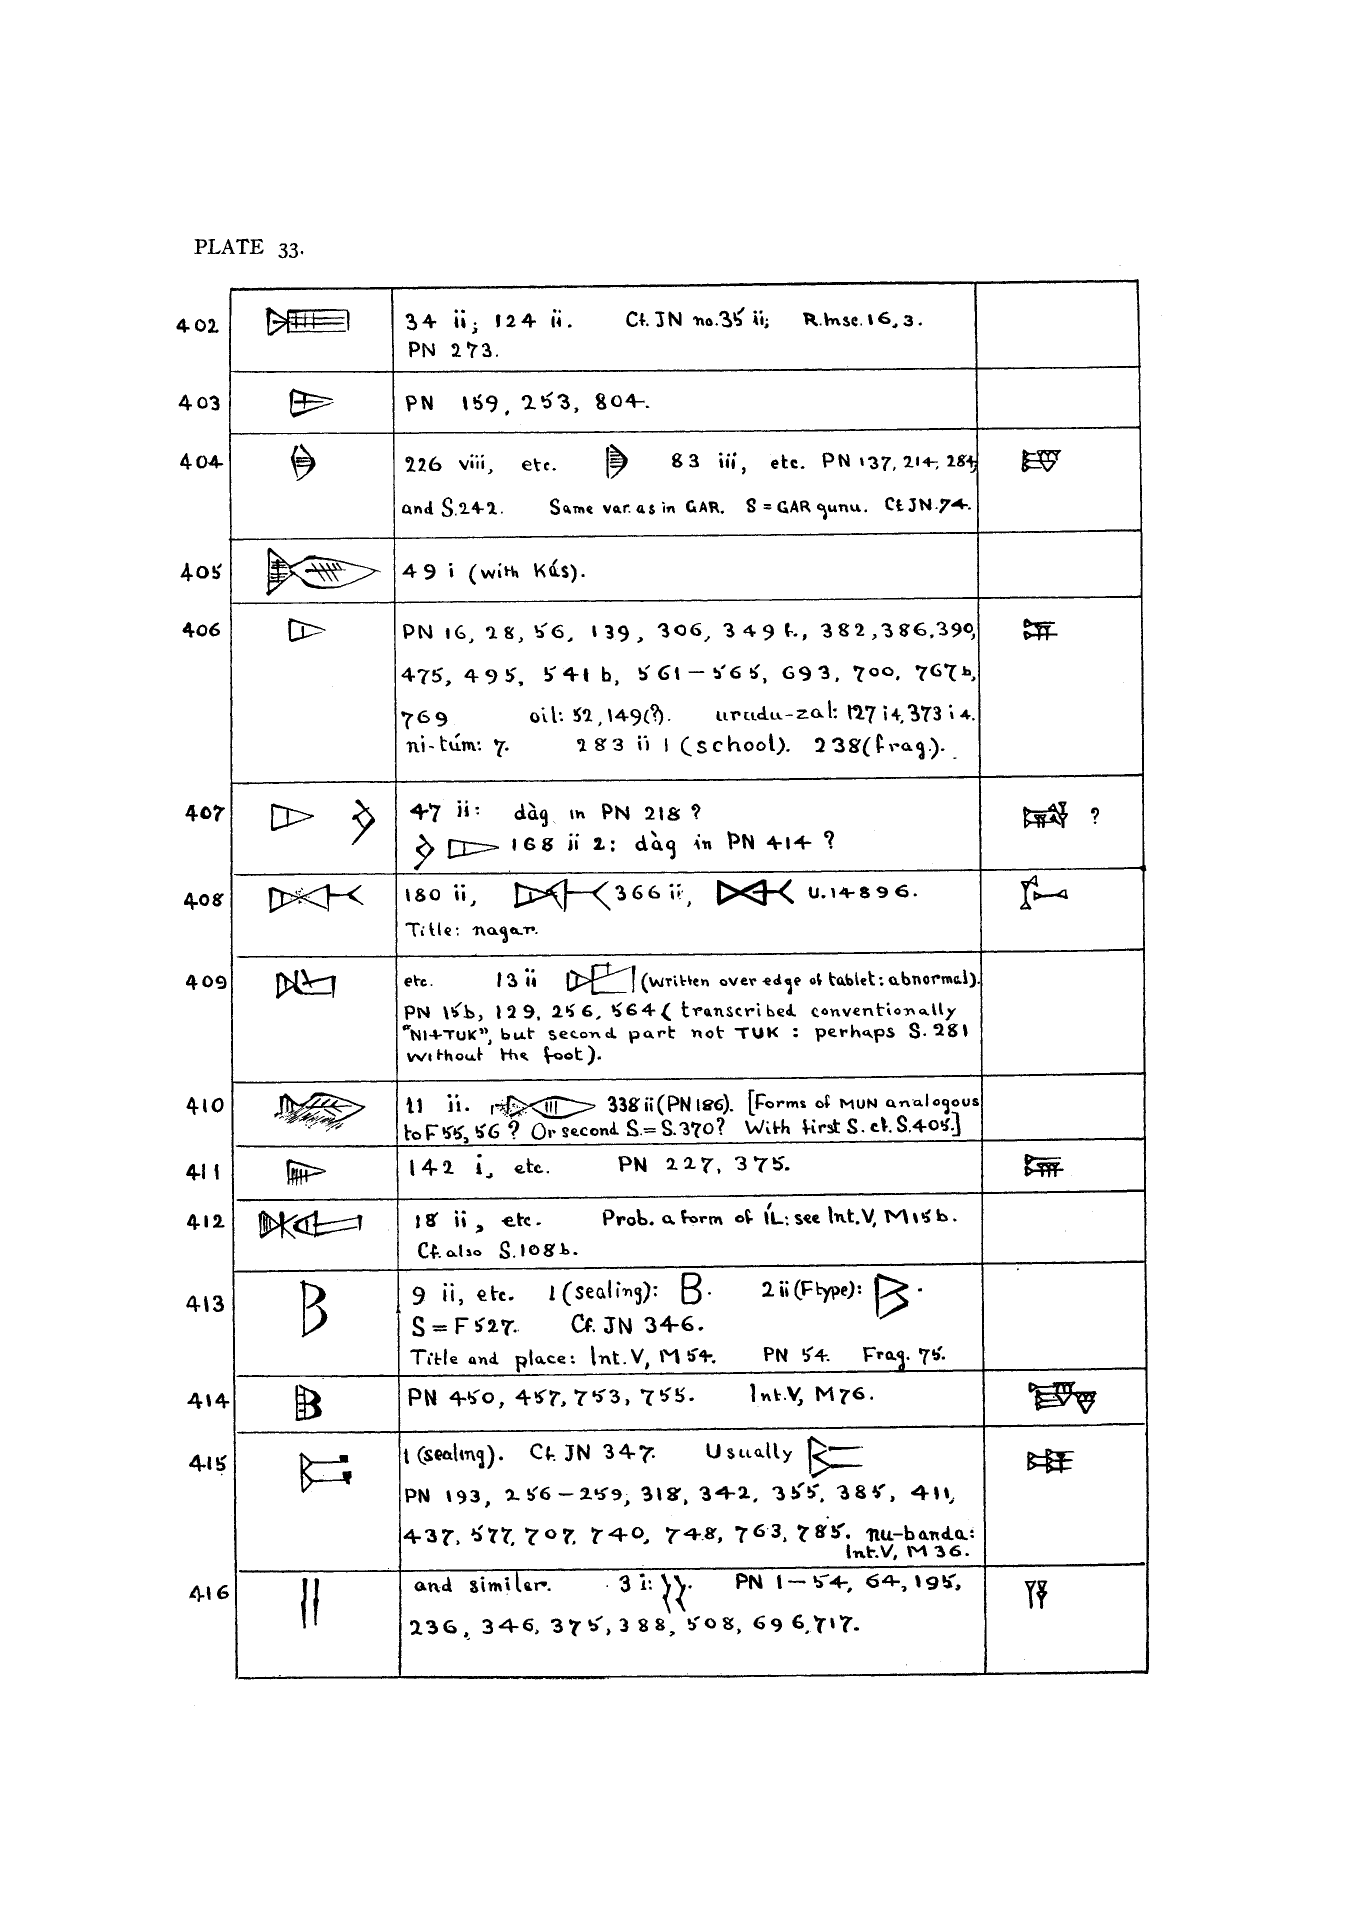 PLATE 33.
402 34 ii; 124 ii. Cf. JN no.35 ii; R.Insc.16,3.
PN 273.
403 PN 159, 253, 804.
404 226 viii, etc. 83 iii, etc. PN 137, 214, 284,
and S.242. Same var. as in GAR. S = GAR gunu. Cf JN.74.
405 49 i (with Kás).
406 PN 16, 28, 56, 139, 306, 349 f., 382, 386, 390,
475, 495, 541 b, 561 – 565, 693, 700, 767 b,
769 oil: 52, 149(?). urudu-zal: 127 i 4, 373 i 4.
ni-túm: 7. 283 ii 1 (school). 238 (frag.).
407 47 ii: dàg in PN 218 ? ?
168 ii 2: dàg in PN 414 ?
408 180 ii, 366 ii, U.14896.
Title: nagar.
409 etc. 13 ii (written over edge of tablet: abnormal).
PN 15b, 129, 256, 564 ( transcribed conventionally
"NI+TUK", but second part not TUK : perhaps S. 281
without the foot).
410 11 ii. 338 ii (PN 186). [Forms of MUN analogous
to F 55, 56 ? Or second S. = S.370? With first S. cf. S.405.]
411 142 i, etc. PN 227, 375.
412 18 ii, etc. Prob. a form of ÍL: see Int.V, M15b.
Cf. also S.108b.
413 9 ii, etc. 1 (sealing): 2 ii (F type): .
S = F 527. Cf. JN 346.
Title and place: Int.V, M 54. PN 54. Frag. 75.
414 PN 450, 457, 753, 755. Int.V, M76.
415 1 (sealing). Cf. JN 347. Usually
PN 193, 256 – 259, 318, 342, 355, 385, 411,
437, 577, 707, 740, 748, 763, 785. nu-banda:
Int.V, M 36.
416 and similar. 3 i: . PN 1 – 54, 64, 195,
236, 346, 375, 388, 508, 696, 717.